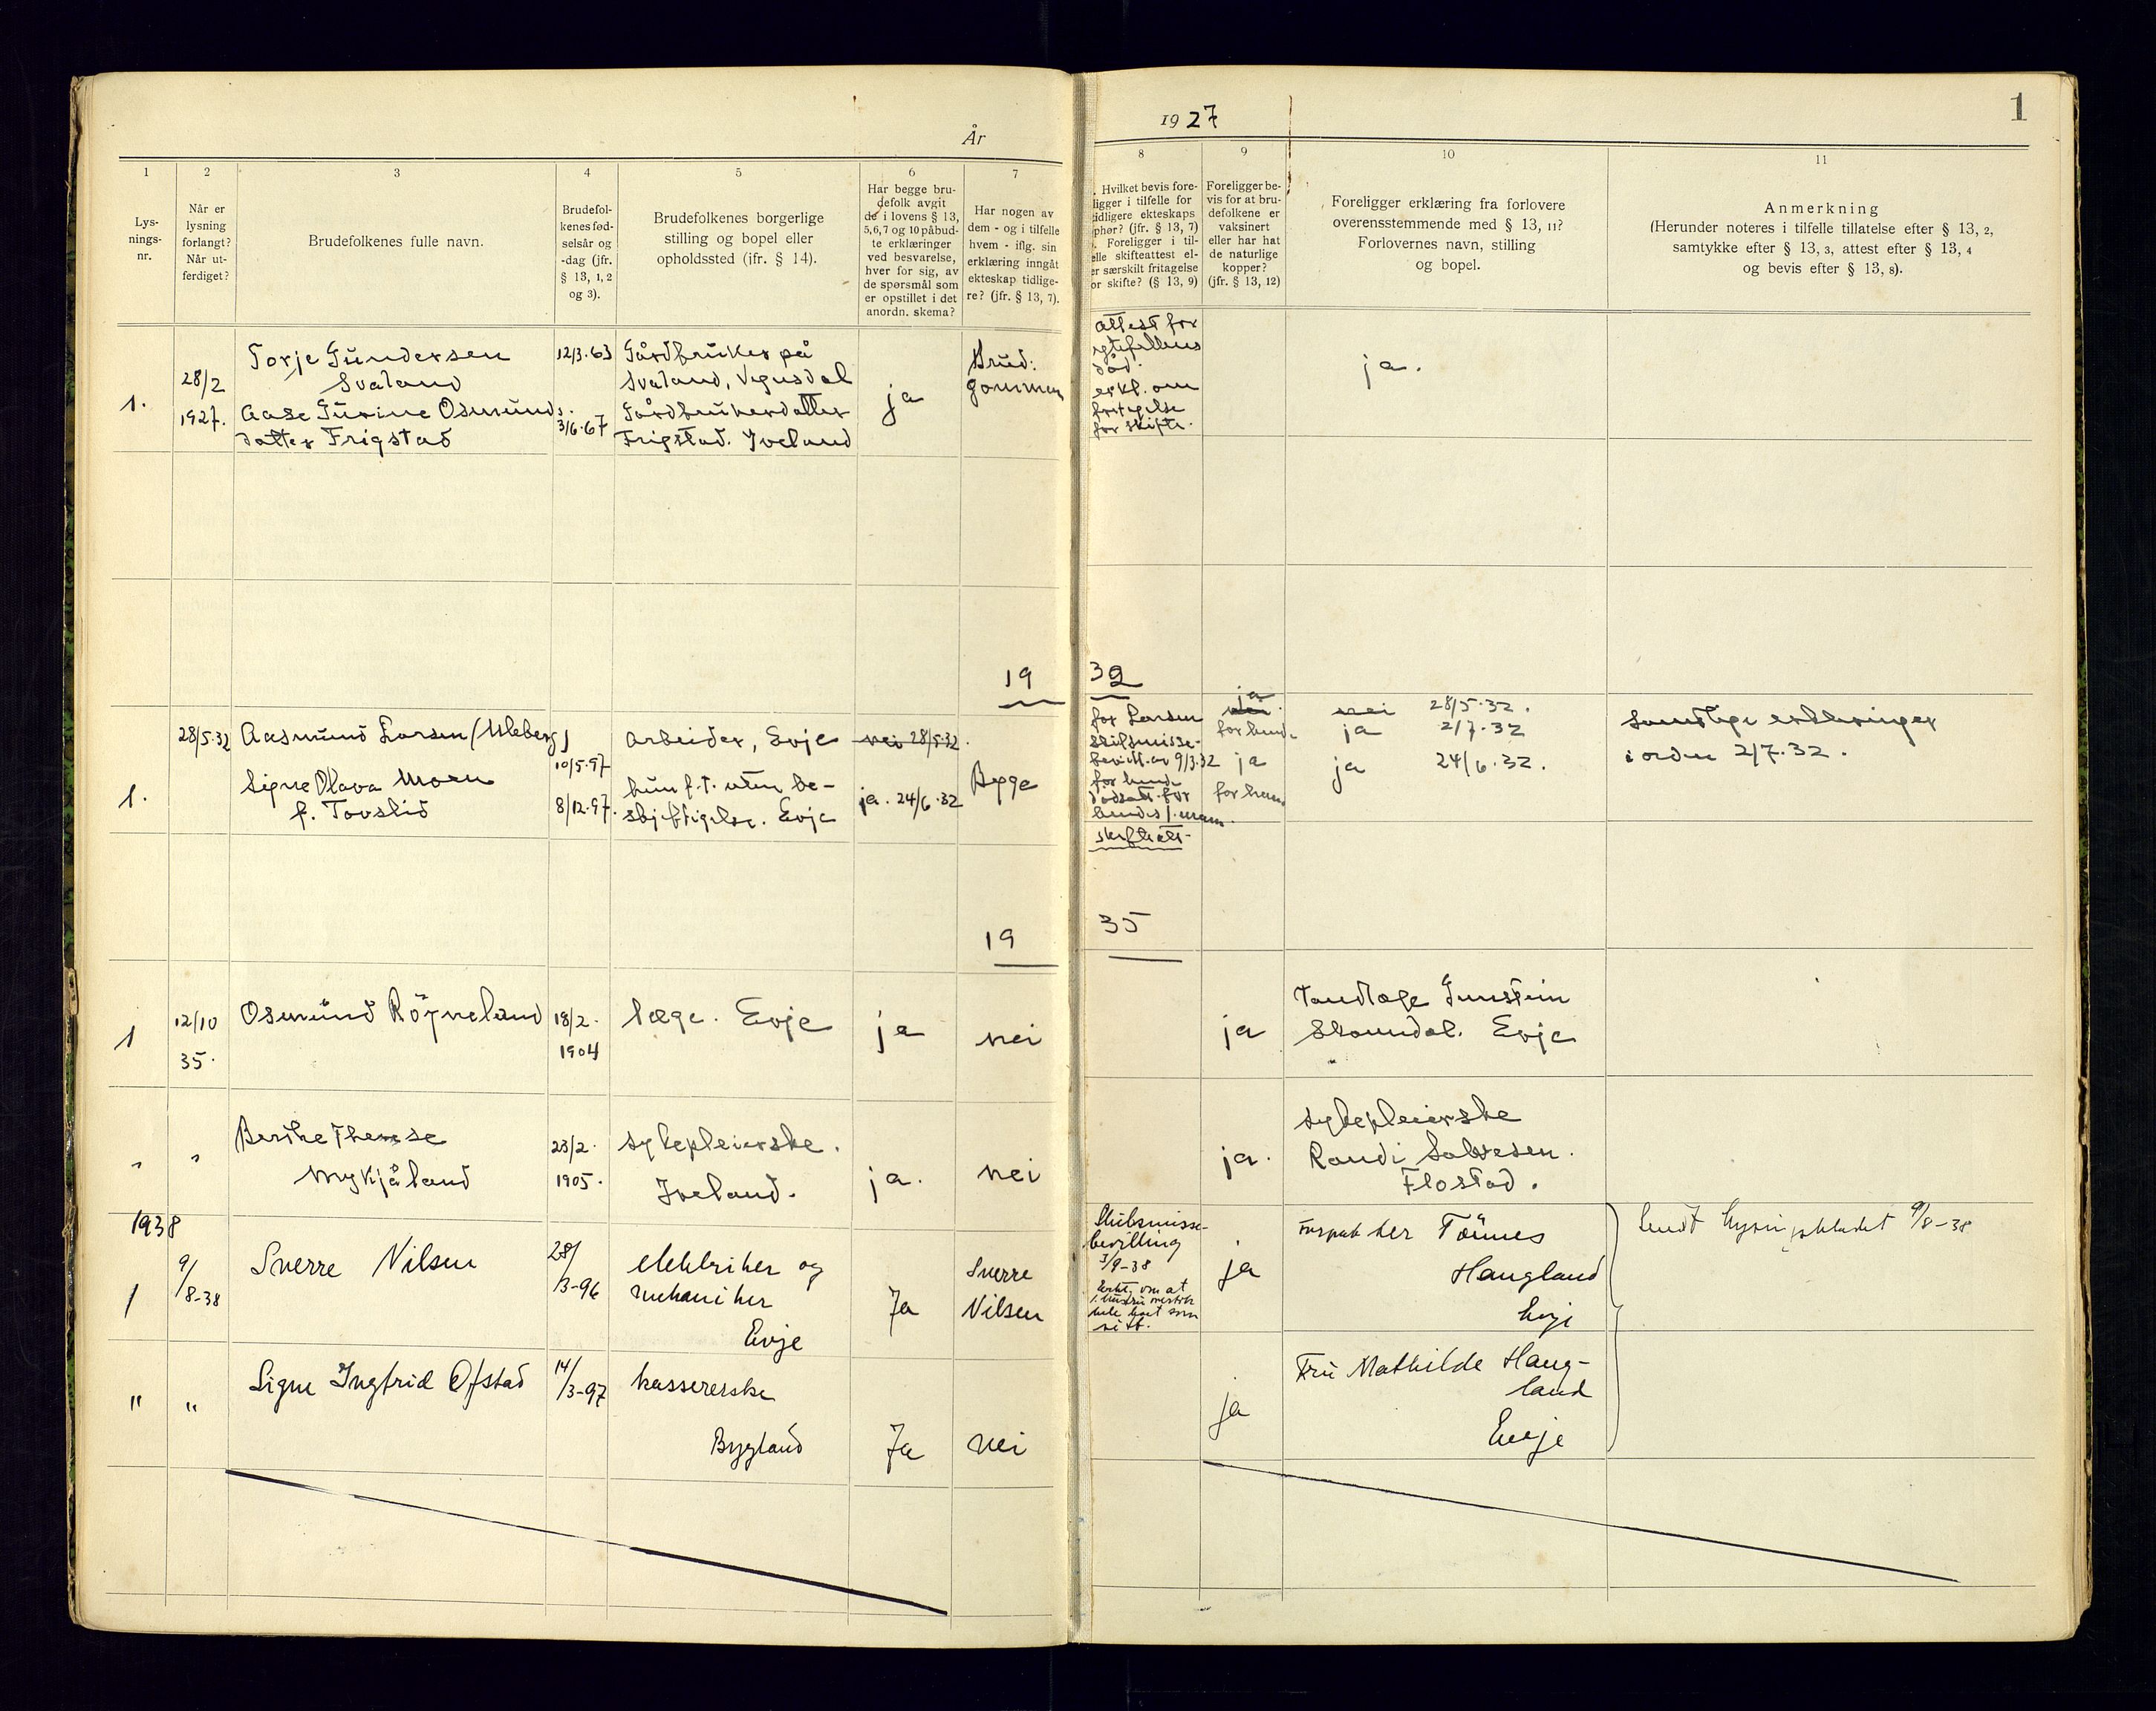 År
1927
1
1
2
3
4
5
6
7
8
9
10
11
Lys-
nings-
nr.
Når er
lysning
forlangt?
Når ut-
ferdiget?
Brudefolkenes fulle navn.
Brudefol-
kenes fød-
selsår og
-dag (jfr.
§ 13, 1, 2
og 3).
Brudefolkenes borgerlige
stilling og bopel eller
opholdssted (ifr. § 14).
Har begge bru-
defolk avgit
de i lovens § 13,
5,6,7 og 10 påbud-
te erklæringer
ved besvarelse,
hver for sig, av
de spørsmål som
er opstillet i det
anordn. skema?
Har nogen av
dem - og i tilfelle
hvem - iflg. sin
erklæring inngåt
ekteskap tidlige-
re? (jfr. § 13, 7).
. Hvilket bevis fore-
ligger i tilfelle for
tidligere ekteskaps
ophør? (jfr. § 13, 7)
. Foreligger i til-
elle skifteattest el-
er særskilt fritagelse
or skifte? (§ 13, 9)
Foreligger be-
vis for at bru-
defolkene er
vaksinert
eller har hat
de naturlige
kopper?
(jfr. § 13, 12)
Foreligger erklæring fra forlovere
overensstemmende med § 13, 11?
Forlovernes navn, stilling
og bopel.
Anmerkning
(Herunder noteres i tilfelle tillatelse efter § 13, 2,
samtykke efter § 13, 3, attest efter § 13, 4
og bevis efter § 13, 8).
1.
28/2
1927.
Torje Gundersen
Svaland
Aase Gurine Osmunds-
datter Frigstad
12/3.63
3/6.67
Gårdbruker på
Svaland, Vegusdal
Gårdbrukerdatter
Frigstad. Iveland
ja
Brud:
gommen
attest for
egtefellens
død.
erkl. om
fritagelse
for skifte.
ja.
19 32
1.
28/5.32
Aasmund Larsen (Uleberg)
Signe Olava Moen
f. Tovslid
10/5.97
8/12.97.
arbeider, Evje
hun f.t. uten be-
skjeftigelse. Evje
nei 28/5.32.
ja. 24/6.32
Begge
for Larsen
skilsmisse-
bevill. av 9/3.32
for hende
dødsatt. for
hendes f. mann.
skifteatt.
ja
nei.
for hende
ja
for ham
nei 28/5.32.
ja 2/7.32
ja 24/6.32.
Samtlige erklæringer
i orden 2/7.32.
19 35
1
12/10
35.
Osmund Röyneland
18/2.
1904
læge. Evje
ja
nei
ja
Tandlæge Gunstein
Skomdal. Evje
" "
Berthe Therese
Mykjåland
23/2.
1905.
sykepleierske.
Iveland.
ja.
nei
ja.
sykepleierske
Randi Salvesen.
Flostad.
1938
1
9/8-38
Sverre Nilsen
28/3-96
elektriker og
mekaniker
Evje
Ja
Sverre
Nilsen
Skilsmisse-
bevilling
3/9-38
om at
ja
Tönnes
Haugland
Evje
Sendt lysningsbladet 9/8-38
" "
Signe Ingfrid Ofstad
14/3-97
kassererske
Bygland
Ja
Nei
ja
Fru Mathilde Haug-
land
Evje